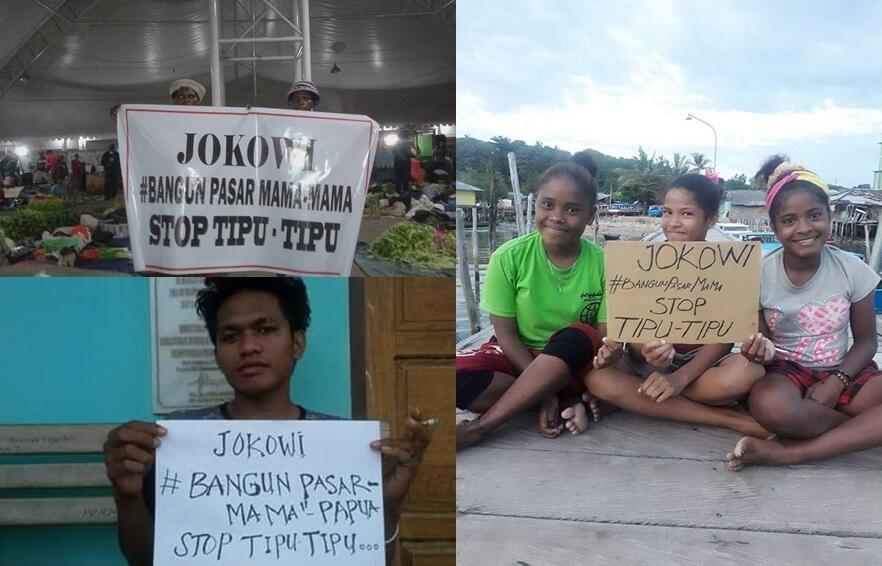 JOKOWI
#BANGUN PASAR MAMA-MAMA
STOP TIPU-TIPU
JOKOWI
# BANGUN PASAR-
MAMA"-PAPUA
STOP TIPU-TIPU...
JOKOWI
#BANGUNPASARMAMA
STOP
TIPU-TIPU